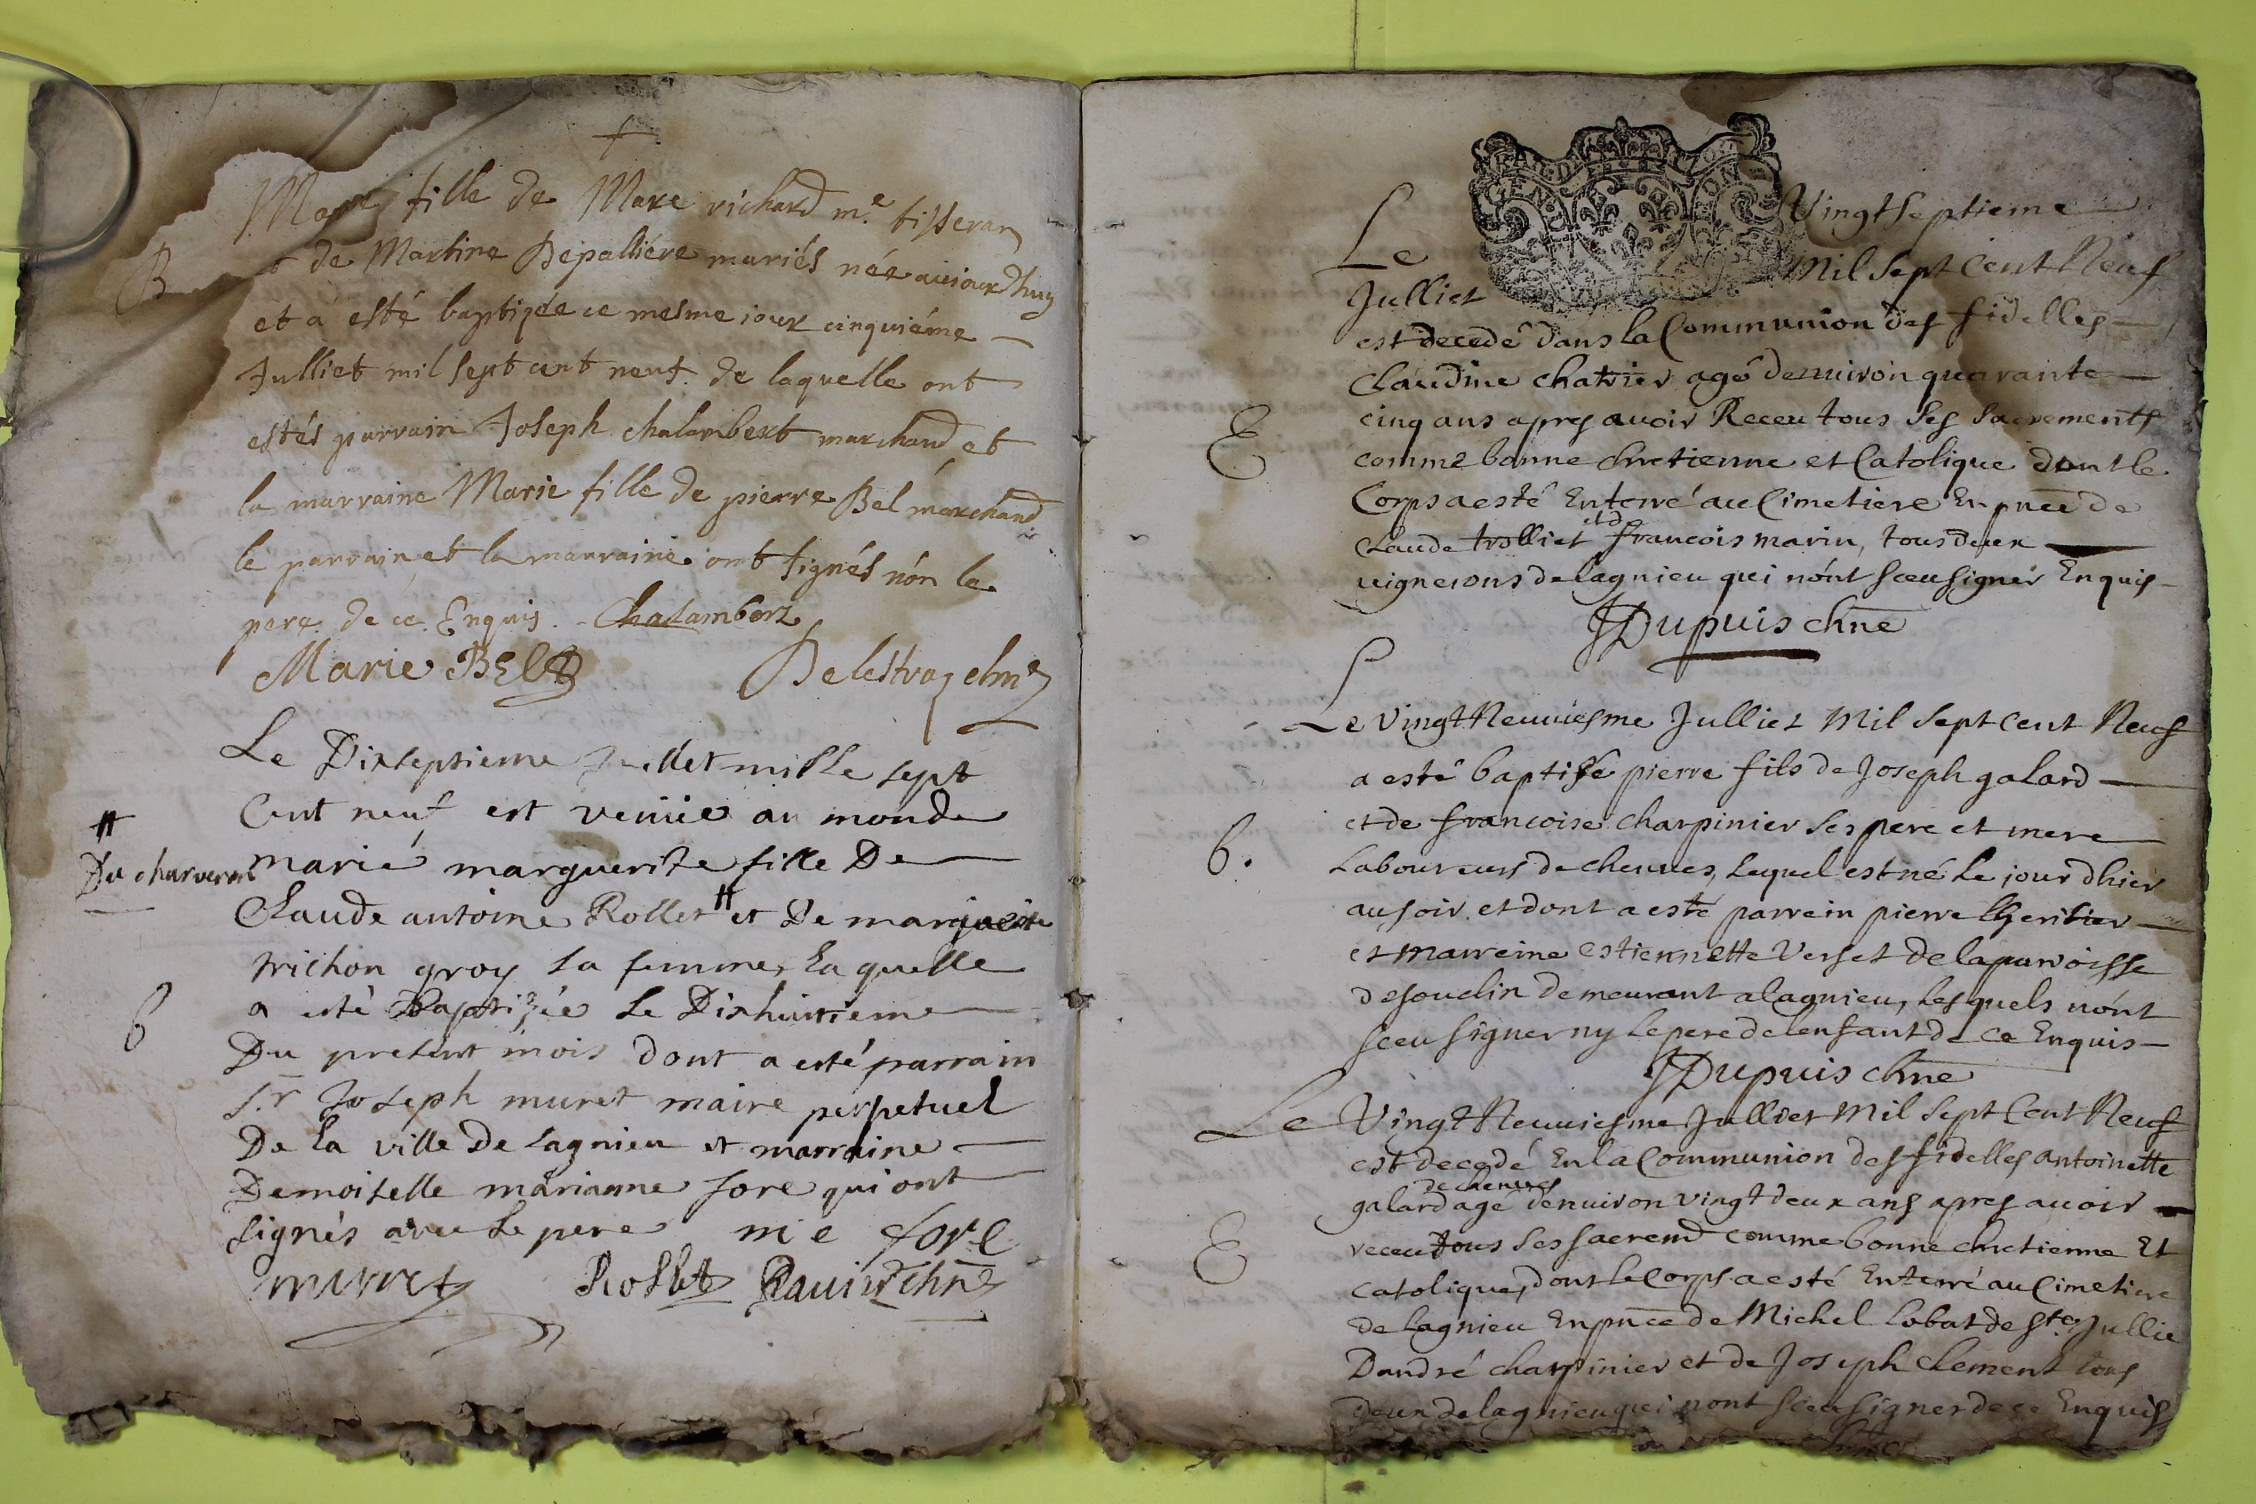 Marie fille de Marc richard m.e tisseran
B
et de Martine Depalliére mariés née auiourdhuy
et a esté baptizée ce mesme iour cinquiéme
Julliet mil sept cent neuf. de laquelle ont
estés parrain Joseph chalambert marchand et
la marraine Marie fille de pierre Bel marchand
le parrain et la marraine ont signés nón le
pere de ce Enquis. Chalambert
Marie BEL
Delestraz
Le Dixseptieme Juillet mille sept
Cent neuf est venüe au monde
# Du charveron
marie marguerite fille De
Claude antoine Rollet # et De marguerite
trichon groy sa femme, Laquelle
a esté Baptizée Le Dixhuitieme
6
Du present mois dont a esté parrain
s.r Joseph muret maire perpetuel
De la ville De Lagnieu et marraine
Demoiselle marianne fore qui ont
signés avec Le pere m e fore
murret Rollet Ravier chne
GEN
LION
Le Vingt Septieme
Julliet Mil Sept Cent Neuf
est decedé dans la Communion des fidelles
Claudine chatrier agé denuiron quarante
E
cinq ans apres auoir Receu tous ses Sacrements
comme bonne chretienne et Catolique dont le
Corps a esté Enterré au Cimetiere En pnce de
Claude trolliet et d francois marin, tous deux
uignerons de lagnieu qui nónt sceu signér Enquis
JDupuis chne
Le Vingt Neuuiesme Julliet Mil Sept Cent Neuf
a esté baptisé pierre fils de Joseph galard
et de francoise Charpinier ses pere et mere
6.
Laboureurs de cheuves, Lequel est né Le jour dhier
au soir et dont a esté parrein pierre Lheritier
et marreine estiennette Verset de la parroisse
de souclin demeurant a Lagnieu, Lesquels nónt
sceu signer ny Le pere de lenfant de ce Enquis
JDupuis chne
Le Vingt Neuuiesme Julliet Mil Sept Cent Neuf
est decedé En la Communion des fidelles antoinette
galard de cheuves agé denuiron vingt deux ans apres auoir
E
receu tous ses sacremt comme bonne chretienne Et
Catolique, dont Le Corps a esté Enterré au Cimetiere
de Lagnieu En pnce de Michel Lobat de Ste Jullie
Dandré charpinier et de Joseph Clement tous
deux de lagnieu qui nont sceu signer de ce Enquis